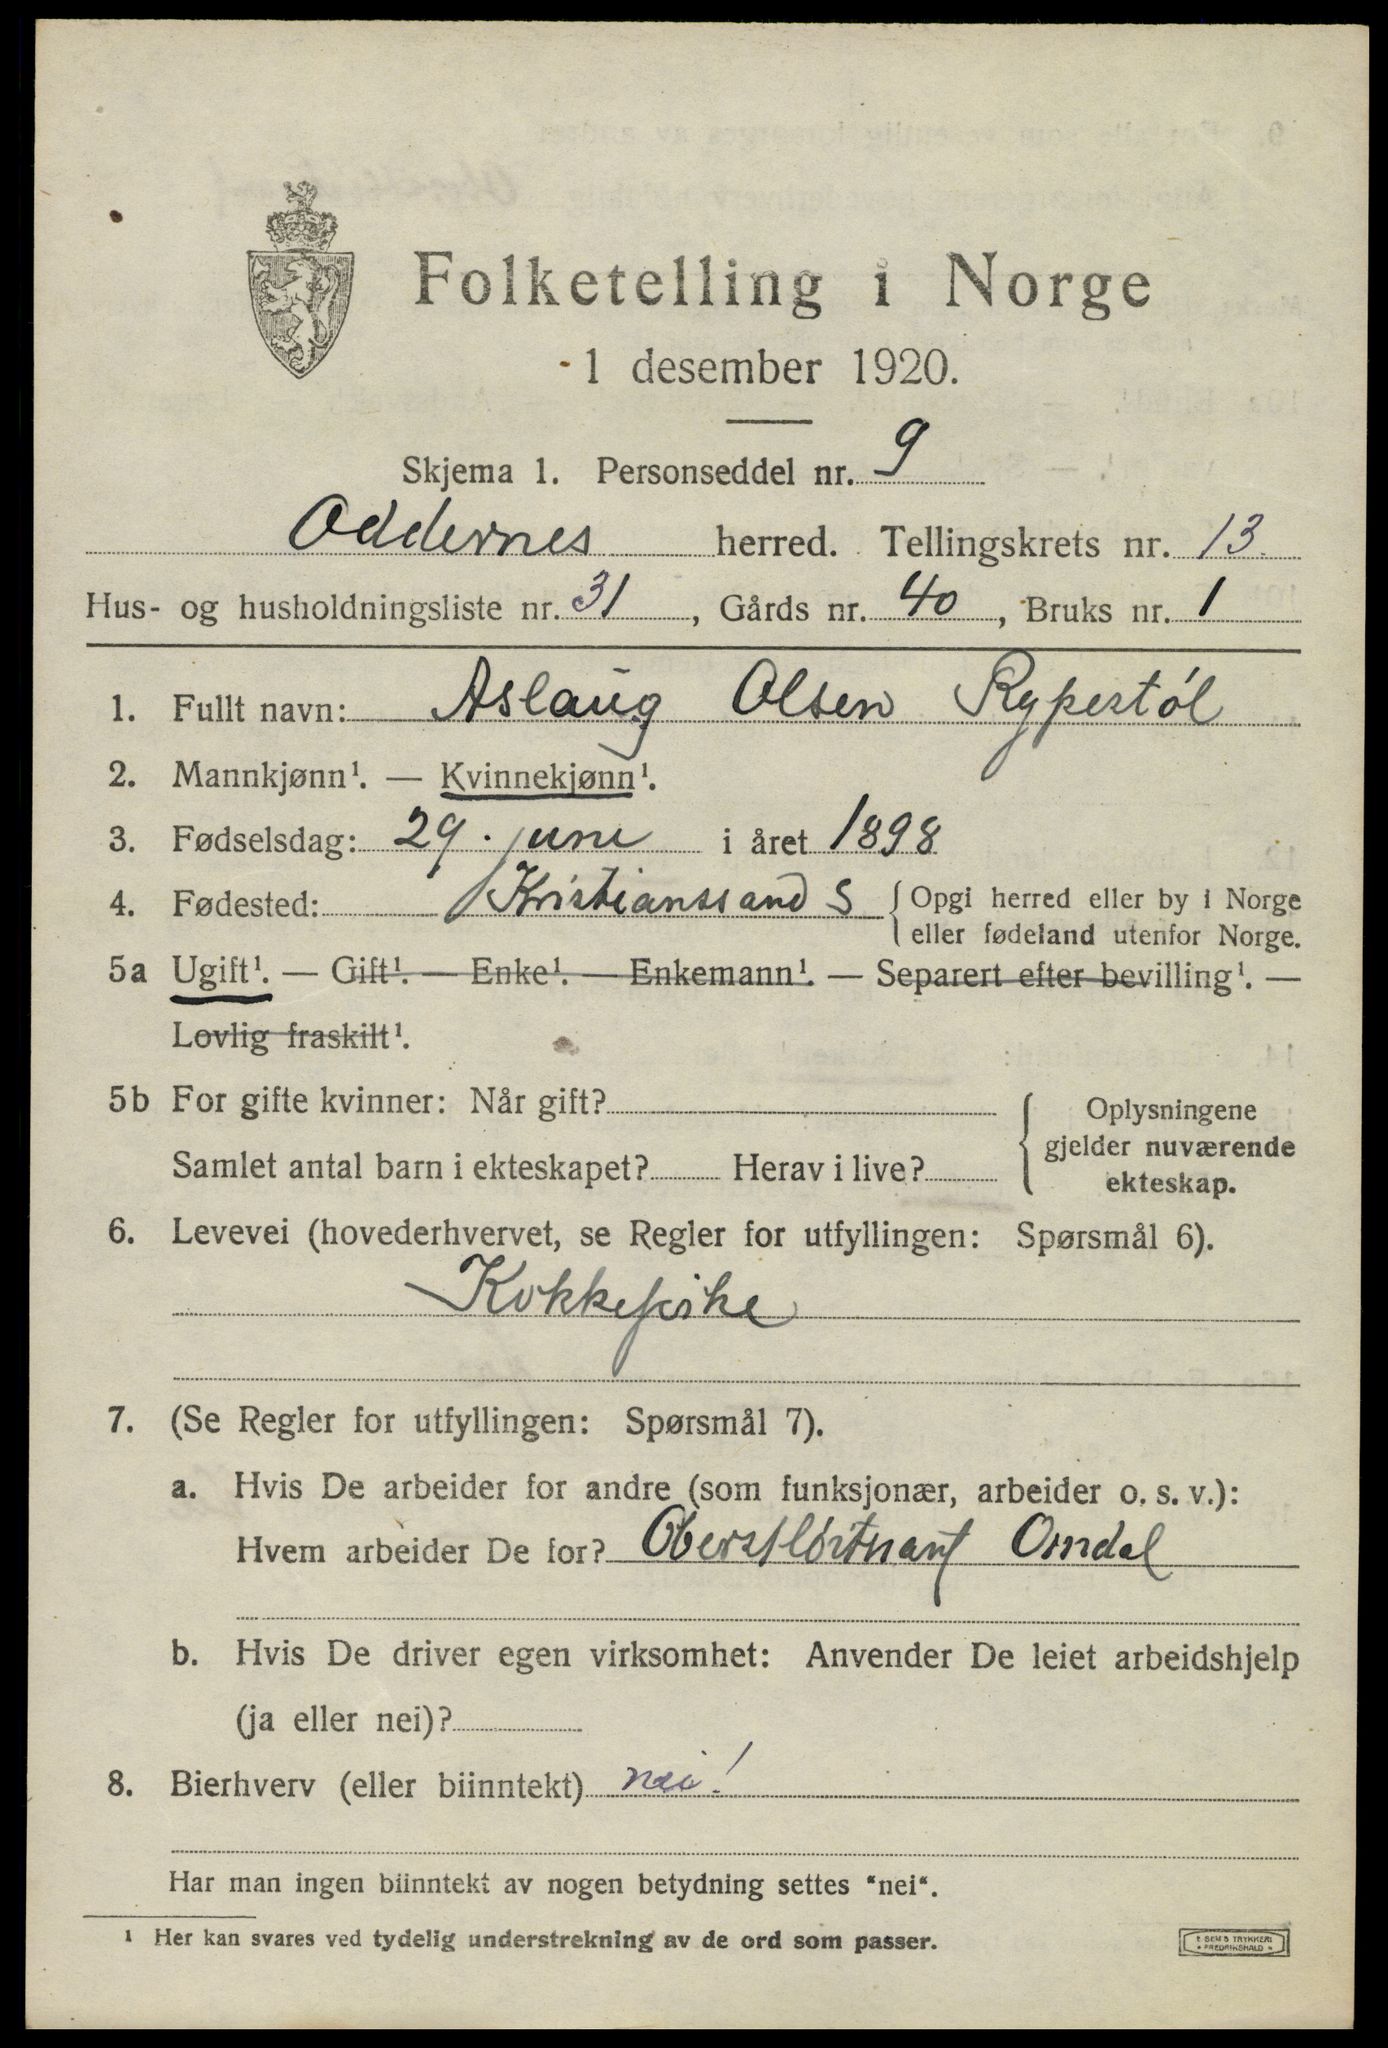 Folketelling i Norge
1 desember 1920.
Skjema 1. Personseddel nr. 9
Oddernes herred. Tellingskrets nr. 13.
Hus- og husholdningsliste nr. 31, Gårds nr. 40, Bruks nr. 1
1. Fullt navn: Aslaug Olsen Rypestøl
2. Mannkjønn¹. — Kvinnekjønn¹.
3. Fødselsdag: 29. juni i året 1898
4. Fødested: Kristianssand S { Opgi herred eller by i Norge
eller fødeland utenfor Norge.
5a Ugift¹. — Gift¹. — Enke¹. — Enkemann¹. — Separert efter bevilling¹. —
Lovlig fraskilt¹.
5b For gifte kvinner: Når gift? { Oplysningene
gjelder nuværende
Samlet antal barn i ekteskapet? Herav i live?
ekteskap.
6. Levevei (hovederhvervet, se Regler for utfyllingen: Spørsmål 6).
Kokkepike
7. (Se Regler for utfyllingen: Spørsmål 7).
a. Hvis De arbeider for andre (som funksjonær, arbeider o. s. v.):
Hvem arbeider De for? Oberstløitnant Omdal
b. Hvis De driver egen virksomhet: Anvender De leiet arbeidshjelp
(ja eller nei)?
8. Bierhverv (eller biinntekt) nei!
Har man ingen biinntekt av nogen betydning settes "nei".
¹ Her kan svares ved tydelig understrekning av de ord som passer.
E SEM'S TRYKKERI
FREDRIKSHALD